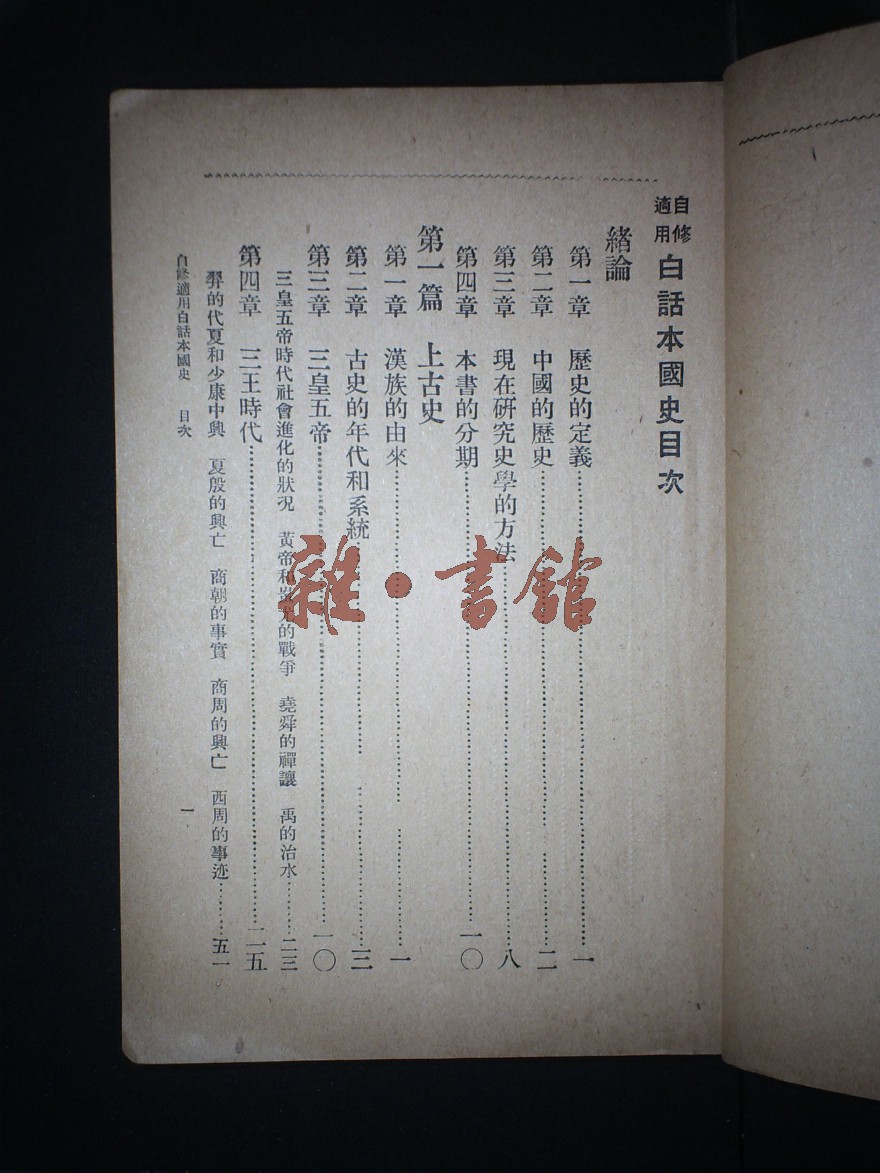 自修適用 白話本國史目次
緒論
第一章 歷史的定義……一
第二章 中國的歷史……二
第三章 現在研究史學的方法……八
第四章 本書的分期……一〇
第一篇 上古史
第一章 漢族的由來……一
第二章 古史的年代和系統……三
第三章 三皇五帝……一〇
三皇五帝時代社會進化的狀況 黃帝和蚩尤的戰爭 堯舜的禪讓 禹的治水……二三
第四章 三王時代……二五
羿的代夏和少康中興 夏殷的興亡 商朝的事實 商周的興亡 西周的事迹……五一
自修適用白話本國史 目次 一
雜·書館